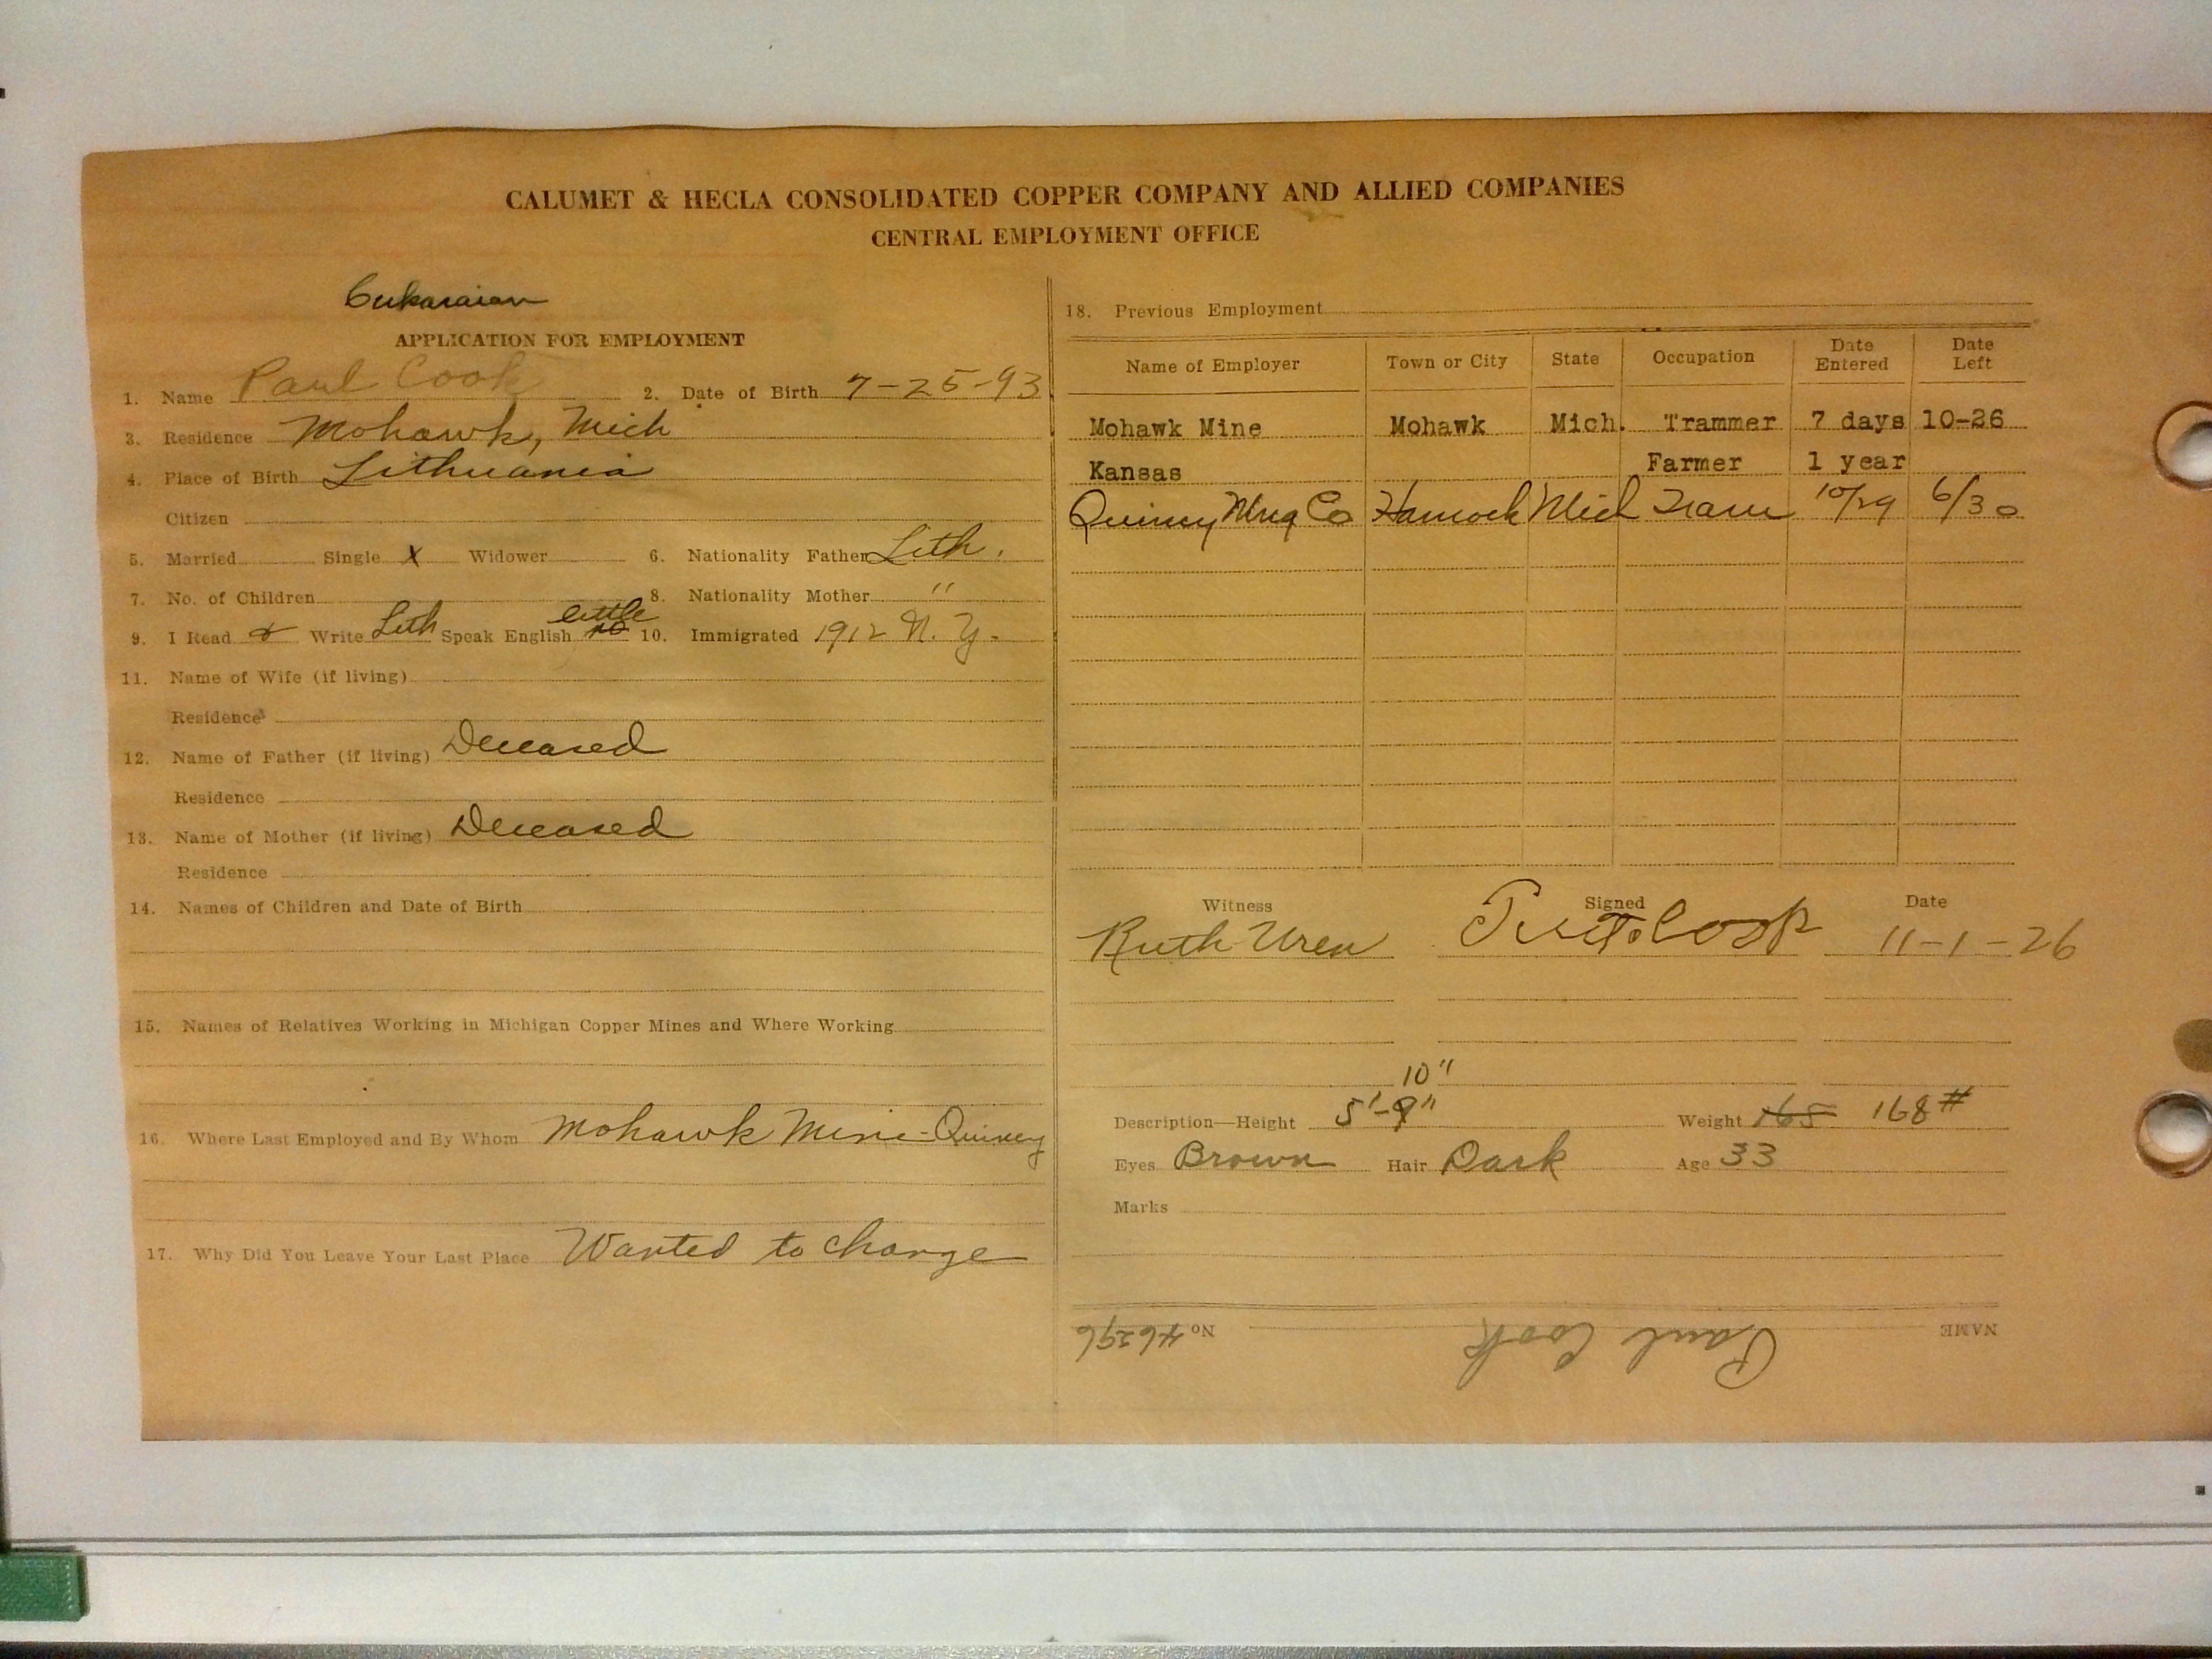 CALUMET & HECLA CONSOLIDATED COPPER COMPANY AND ALLIED COMPANIES
CENTRAL EMPLOYMENT OFFICE
APPLICATION FOR EMPLOYMENT
1. Name Paul Cook 2. Date of Birth 7-25-93
3. Residence Mohawk, Mich
4. Place of Birth Lithuania
Citizen
5. Married Single X Widower 6. Nationality Father Lith.
7. No. of Children 8. Nationality Mother "
little
9. I Read & Write Lith Speak English no 10. Immigrated 1912 N. Y.
11. Name of Wife (if living)
Residence
12. Name of Father (if living) Deceased
Residence
13. Name of Mother (if living) Deceased
Residence
14. Names of Children and Date of Birth
15. Names of Relatives Working in Michigan Copper Mines and Where Working
16. Where Last Employed and By Whom Mohawk Mine - Quincy
17. Why Did You Leave Your Last Place Wanted to change
18. Previous Employment
Name of Employer Town or City State Occupation Date Entered Date Left
Mohawk Mine Mohawk Mich. Trammer 7 days 10-26
Kansas Farmer 1 year
Quincy Mng Co Hancock Mich Tram 10/29 6/30
Witness Signed Date
Ruth Uren Cook 11-1-26
10"
Description—Height 5'-9" Weight 165 168#
Eyes Brown Hair Dark Age 33
Marks
NAME Paul Cook No 46296